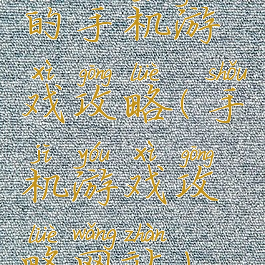 的手机游
xì gōng lüè shǒu
戏攻略(手
jī yóu xì gōng
机游戏攻
lüè wǎng zhàn
略网站)